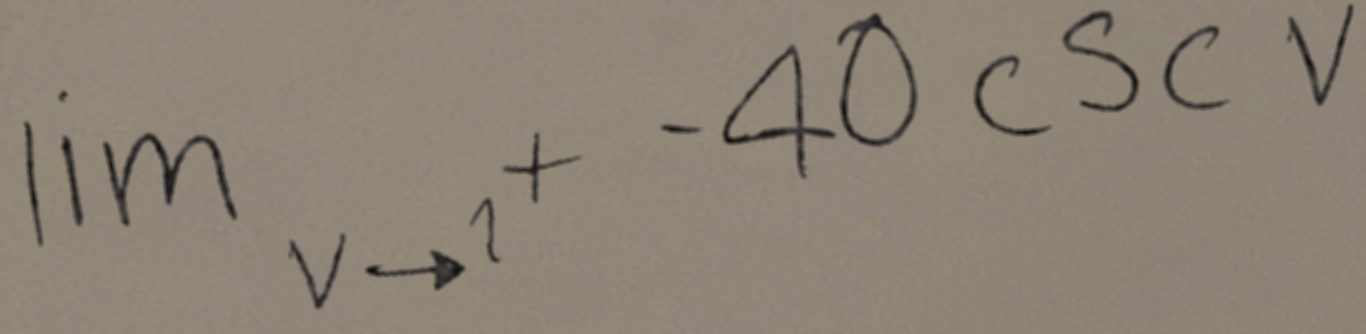 lim v→1⁺ -40 csc v